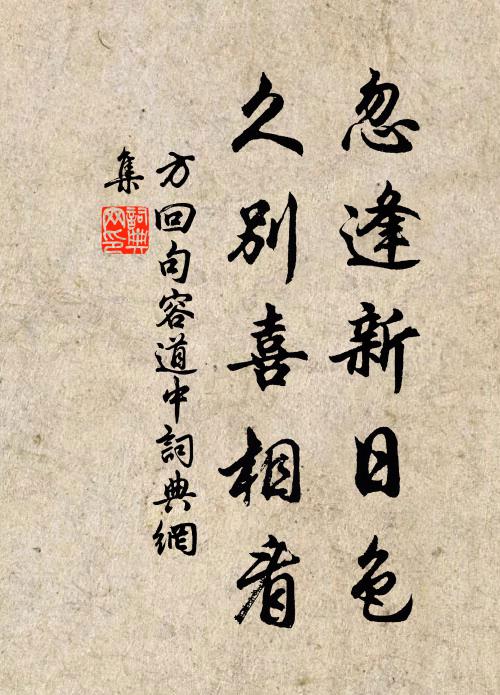 忽逢新日色
久別喜相看
方回句容道中詞典網
集
詞典
网印